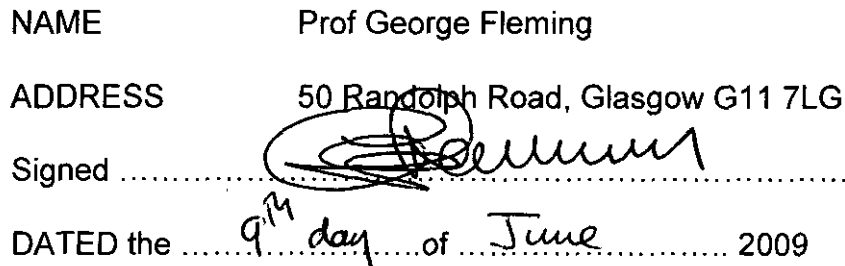 NAME Prof George Fleming
ADDRESS 50 Randolph Road, Glasgow G11 7LG
Signed ........................................................
DATED the ...... 9th day ..... of ... June ............... 2009